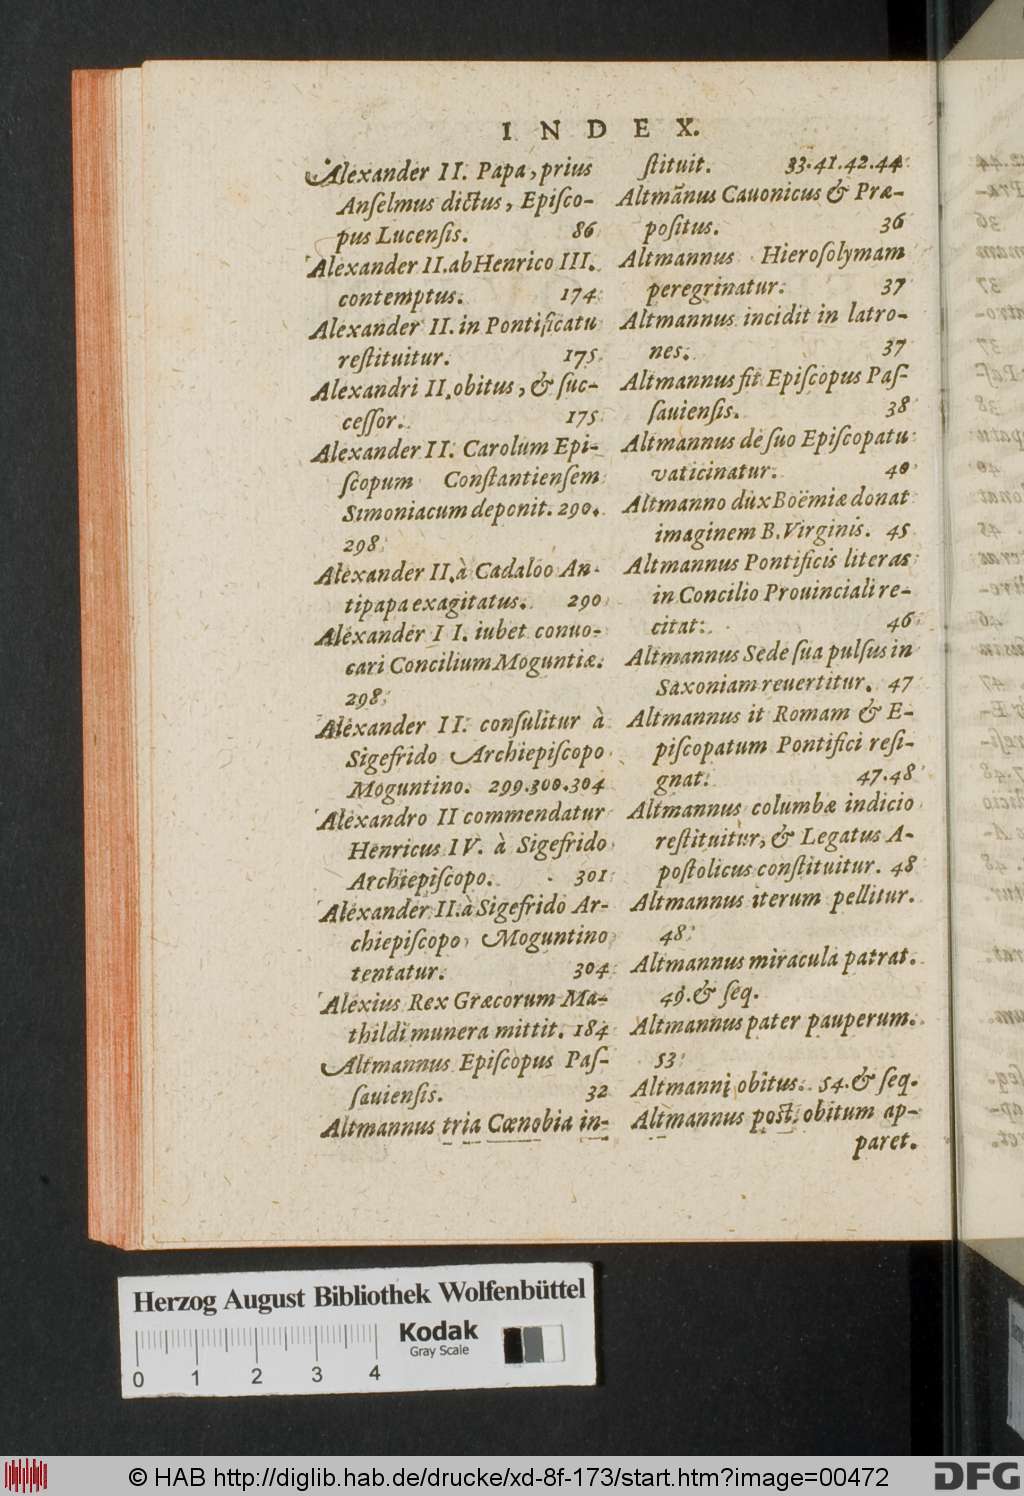 INDEX.
Alexander II. Papa, prius
Anſelmus dictus, Epiſco-
pus Lucenſis. 86
Alexander II. ab Henrico III.
contemptus. 174
Alexander II. in Pontificatu
reſtituitur. 175
Alexandri II. obitus, & ſuc-
ceſſor. 175
Alexander II. Carolum Epi-
ſcopum Conſtantienſem
Simoniacum deponit. 290.
298
Alexander II. à Cadaloo An-
tipapa exagitatus. 290
Alexander II. iubet conuo-
cari Concilium Moguntiæ.
298
Alexander II. conſulitur à
Sigefrido Archiepiſcopo
Moguntino. 299.300.304
Alexandro II commendatur
Henricus IV. à Sigefrido
Archiepiſcopo. 301
Alexander II. à Sigefrido Ar-
chiepiſcopo Moguntino
tentatur. 304
Alexius Rex Græcorum Ma-
thildi munera mittit. 184
Altmannus Epiſcopus Paſ-
ſauienſis. 32
Altmannus tria Cœnobia in-
ſtituit. 33.41.42.44
Altmãnus Cauonicus & Præ-
poſitus. 36
Altmannus Hieroſolymam
peregrinatur. 37
Altmannus incidit in latro-
nes. 37
Altmannus fit Epiſcopus Paſ-
ſauienſis. 38
Altmannus de ſuo Epiſcopatu
vaticinatur. 40
Altmanno dux Boëmiæ donat
imaginem B. Virginis. 45
Altmannus Pontificis literas
in Concilio Prouinciali re-
citat. 46
Altmannus Sede ſua pulſus in
Saxoniam reuertitur. 47
Altmannus it Romam & E-
piſcopatum Pontifici reſi-
gnat. 47.48
Altmannus columbæ indicio
reſtituitur, & Legatus A-
poſtolicus conſtituitur. 48
Altmannus iterum pellitur.
48
Altmannus miracula patrat.
49. & ſeq.
Altmannus pater pauperum.
53
Altmanni obitus. 54. & ſeq.
Altmannus poſt obitum ap-
paret.
Herzog August Bibliothek Wolfenbüttel
Kodak
Gray Scale
0 1 2 3 4
© HAB http://diglib.hab.de/drucke/xd-8f-173/start.htm?image=00472
DFG